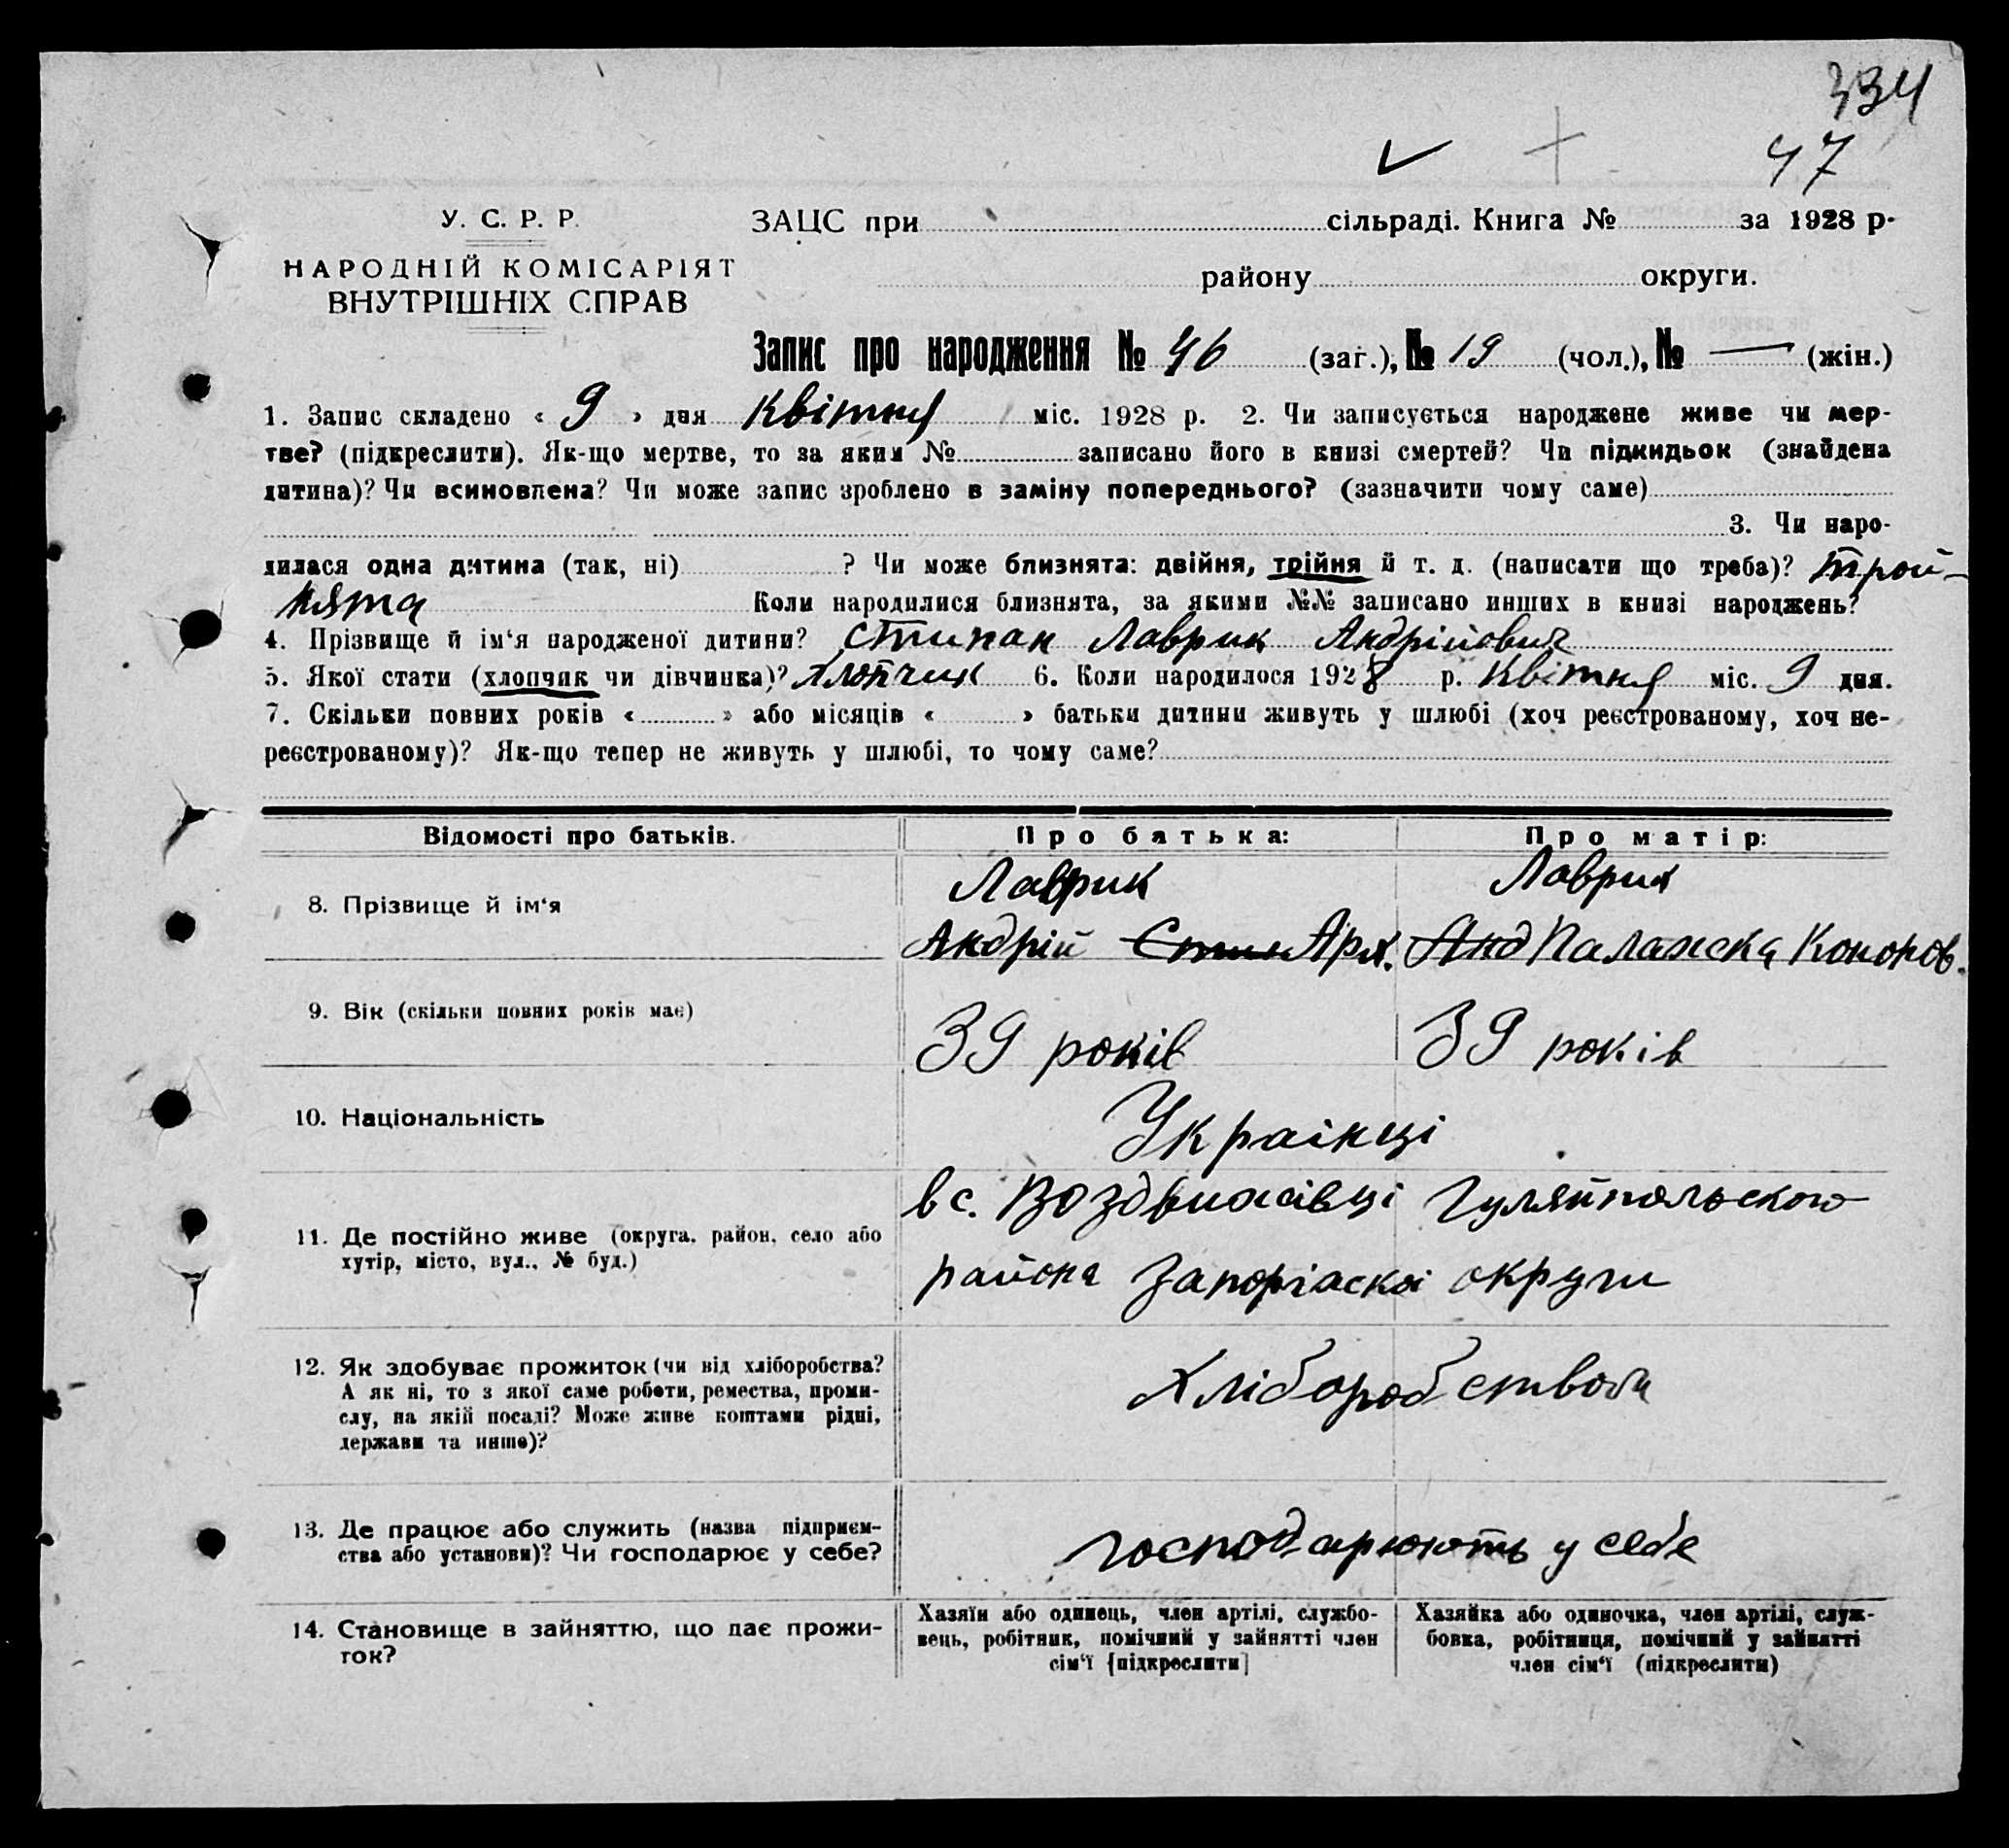 334
47
У. С. Р. Р.
НАРОДНІЙ КОМІСАРІЯТ
ВНУТРІШНІХ СПРАВ
ЗАЦС при сільраді. Книга № за 1928 р.
району округи.
Запис про народження № 46 (заг.), № 19 (чол.), № — (жін.)
1. Запис складено « 9 » дня Квітня міс. 1928 р. 2. Чи записується народжене живе чи мер-
тве? (підкреслити). Як-що мертве, то за яким № записано його в книзі смертей? Чи підкидьок (знайдена
дитина)? Чи всиновлена? Чи може запис зроблено в заміну попереднього? (зазначити чому саме)
3. Чи наро-
дилася одна дитина (так, ні) ? Чи може близнята: двійня, трійня й т. д. (написати що треба)? трой-
нята Коли народилися близнята, за якими №№ записано инших в книзі народжень?
4. Прізвище й ім‘я народженої дитини? Стипан Лаврик Андрійович
5. Якої стати (хлопчик чи дівчинка)? Хлопчик 6. Коли народилося 1928 р. Квітня міс. 9 дня.
7. Скільки повних років « » або місяців « » батьки дитини живуть у шлюбі (хоч реєстрованому, хоч не-
реєстрованому)? Як-що тепер не живуть у шлюбі, то чому саме?
Відомості про батьків. Про батька: Про матір:
8. Прізвище й ім‘я Лаврик Лаврик
Андрій Арх. Паламска Кононов.
9. Вік (скільки повних років має) 39 років 39 років
10. Національність Українці
11. Де постійно живе (округа, район, село або
хутір, місто, вул., № буд.)
в с. Воздвижівці Гуляйпольского
района Запоріаскої округи
12. Як здобуває прожиток (чи від хліборобства?
А як ні, то з якої саме роботи, ремества, проми-
слу, на якій посаді? Може живе коштами рідні,
держави та инше)?
Хліборобством
13. Де працює або служить (назва підприєм-
ства або установи)? Чи господарює у себе?
господарюють у себе
14. Становище в зайняттю, що дає прожи-
ток?
Хазяїн або одинець, член артілі, службо-
вець, робітник, помічний у зайнятті член
сім‘ї [підкреслити]
Хазяйка або одиночка, член артілі, служ-
бовка, робітниця, помічний у зайнятті
член сім‘ї (підкреслити)